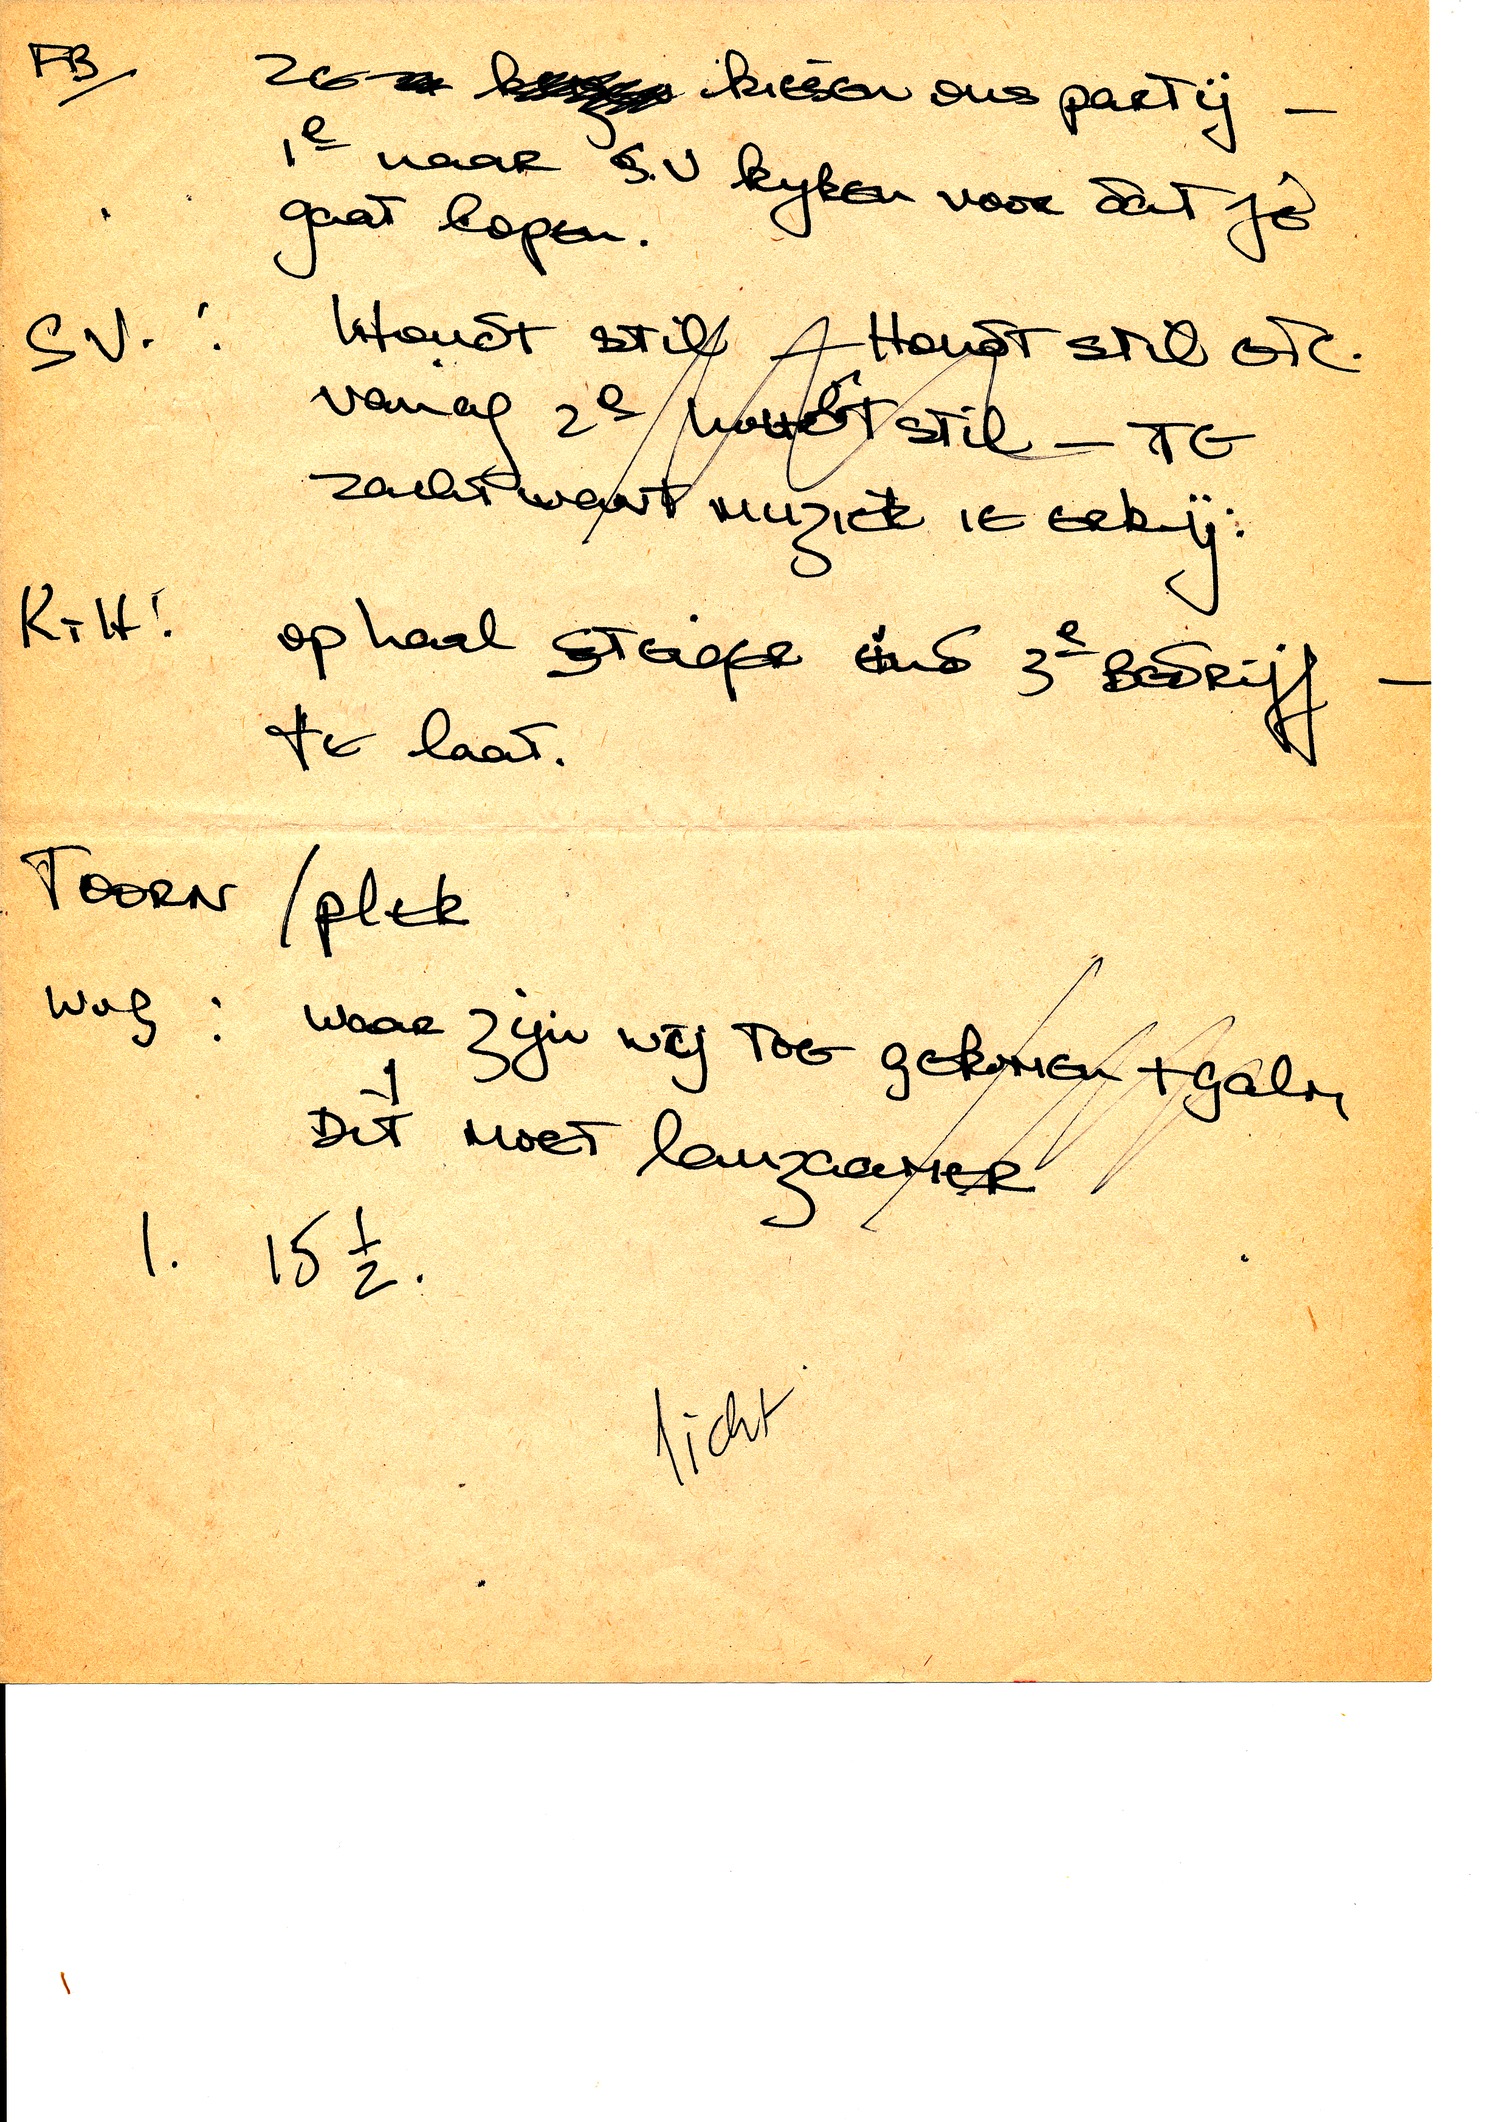 FB ze kiesen ons partij –
1e naar S.V kyken voor dat je
gaat lopen.
S.V. : Houdt stil – Houdt stil etc.
vanag 2e houdt stil – TE
zacht want muziek is erbij:
K+H: ophaal steiger eind 3e Bedrijf –
te laat.
TOORN / plek
WvG : waar zijn wij toe gekomen + galm
Dit moet langzaamer
1. 15 1/2.
licht